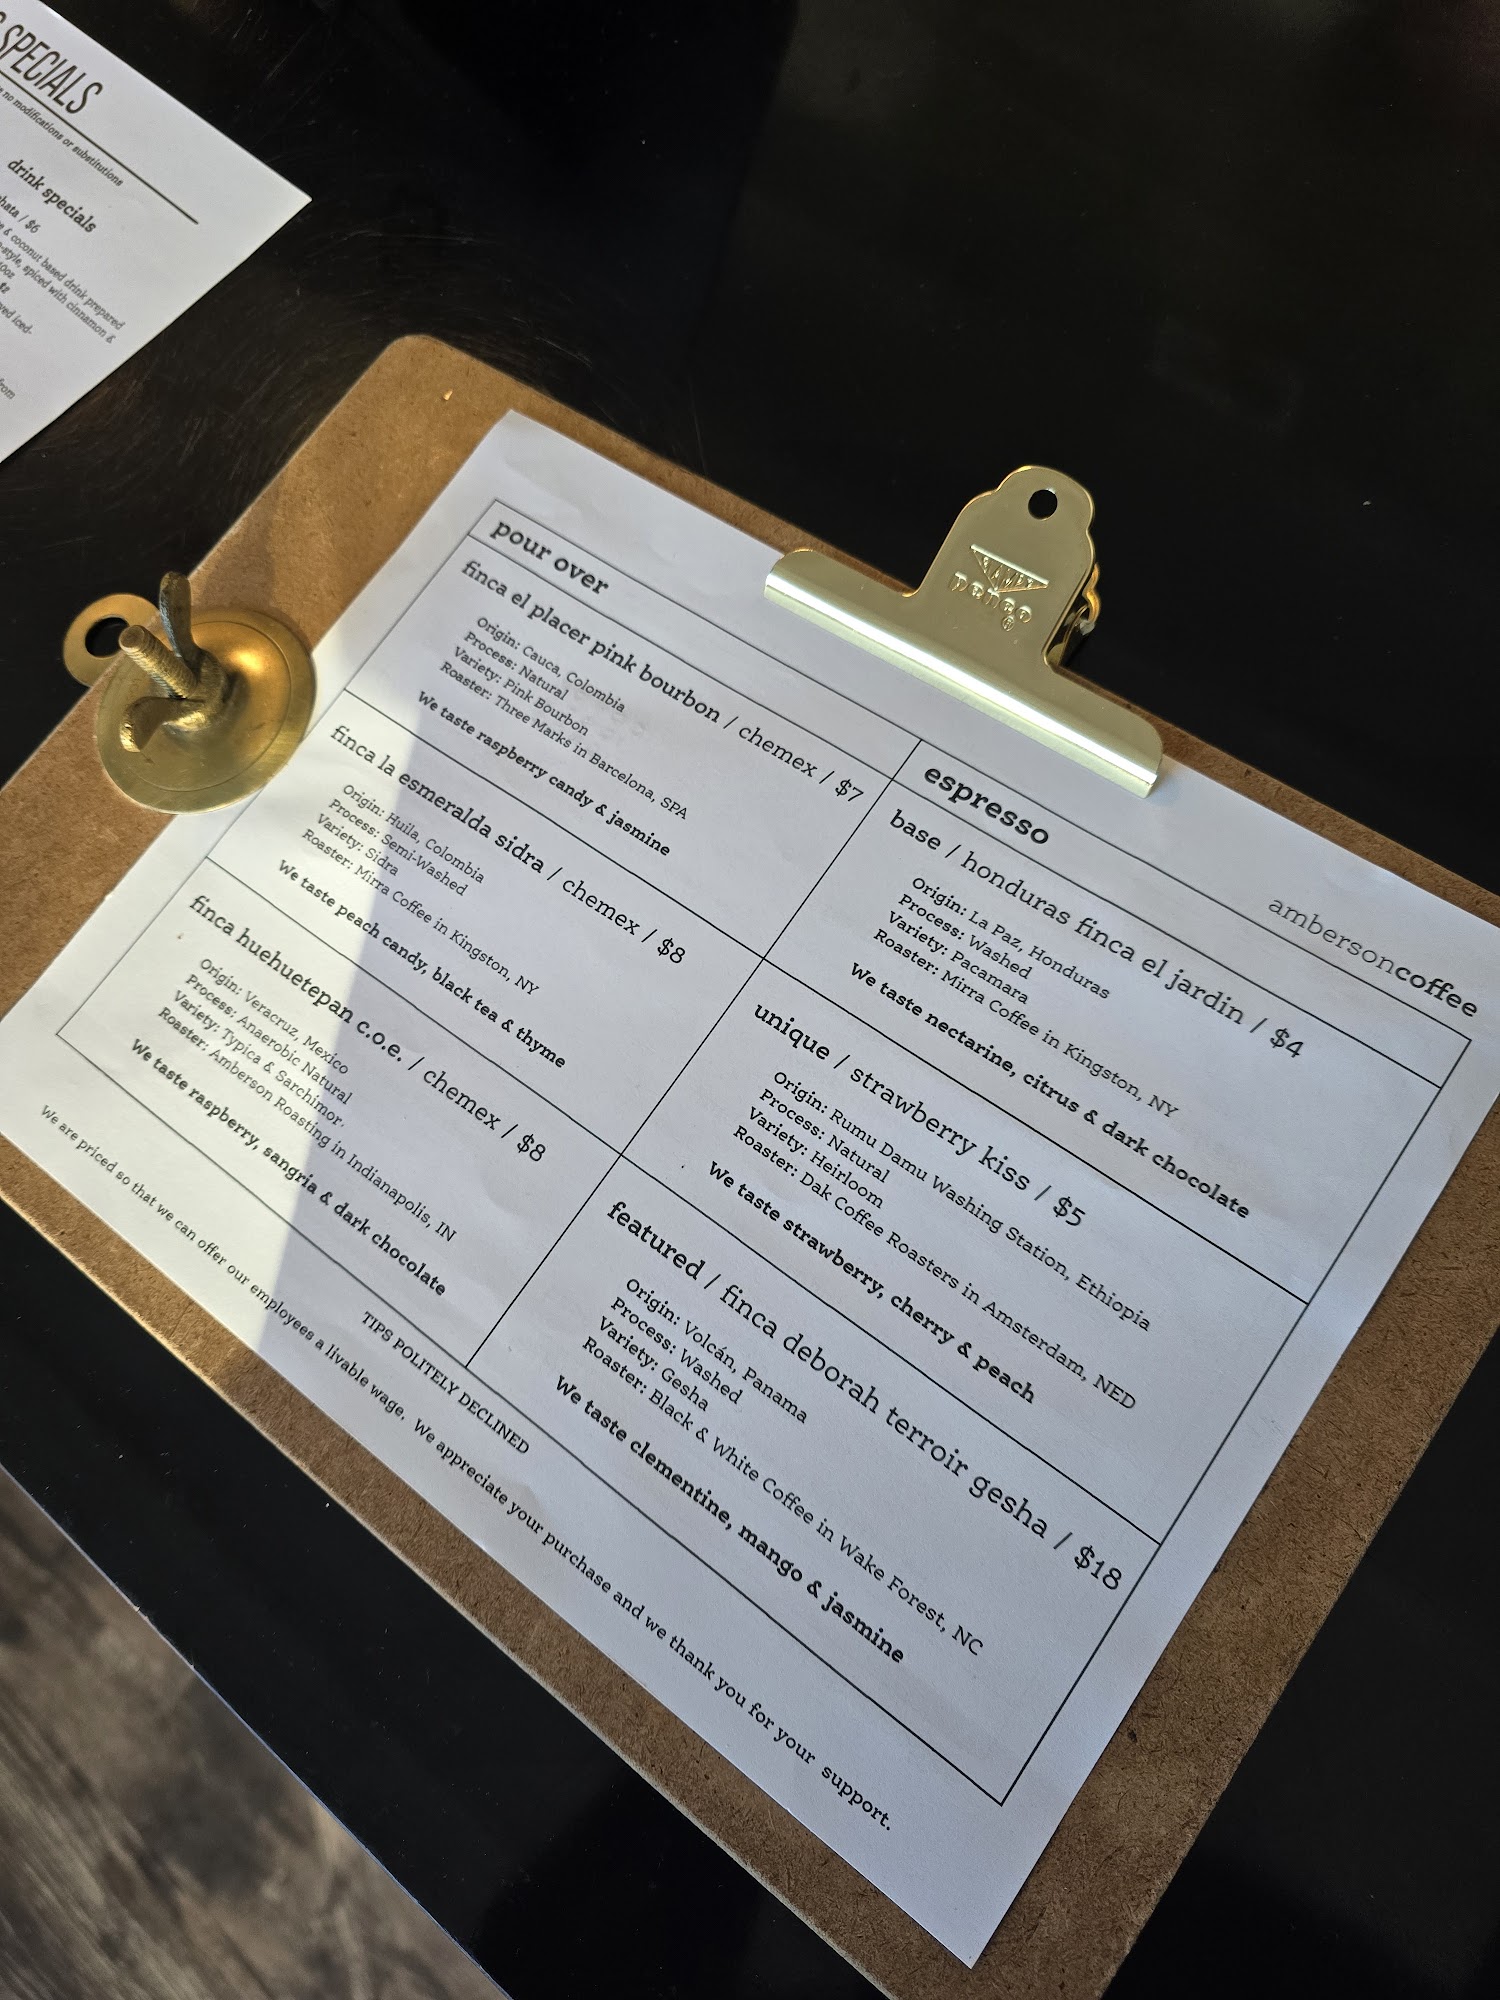 SPECIALS
no modifications or substitutions
drink specials
/ $6
& coconut based drink prepared
-style, spiced with cinnamon &
$2
iced.
from
pongo
®
ambersoncoffee
pour over
finca el placer pink bourbon / chemex / $7
Origin: Cauca, Colombia
Process: Natural
Variety: Pink Bourbon
Roaster: Three Marks in Barcelona, SPA
We taste raspberry candy & jasmine
finca la esmeralda sidra / chemex / $8
Origin: Huila, Colombia
Process: Semi-Washed
Variety: Sidra
Roaster: Mirra Coffee in Kingston, NY
We taste peach candy, black tea & thyme
finca huehuetepan c.o.e. / chemex / $8
Origin: Veracruz, Mexico
Process: Anaerobic Natural
Variety: Typica & Sarchimor.
Roaster: Amberson Roasting in Indianapolis, IN
We taste raspberry, sangria & dark chocolate
espresso
base / honduras finca el jardin / $4
Origin: La Paz, Honduras
Process: Washed
Variety: Pacamara
Roaster: Mirra Coffee in Kingston, NY
We taste nectarine, citrus & dark chocolate
unique / strawberry kiss / $5
Origin: Rumu Damu Washing Station, Ethiopia
Process: Natural
Variety: Heirloom
Roaster: Dak Coffee Roasters in Amsterdam, NED
We taste strawberry, cherry & peach
featured / finca deborah terroir gesha / $18
Origin: Volcán, Panama
Process: Washed
Variety: Gesha
Roaster: Black & White Coffee in Wake Forest, NC
We taste clementine, mango & jasmine
TIPS POLITELY DECLINED
We are priced so that we can offer our employees a livable wage. We appreciate your purchase and we thank you for your support.